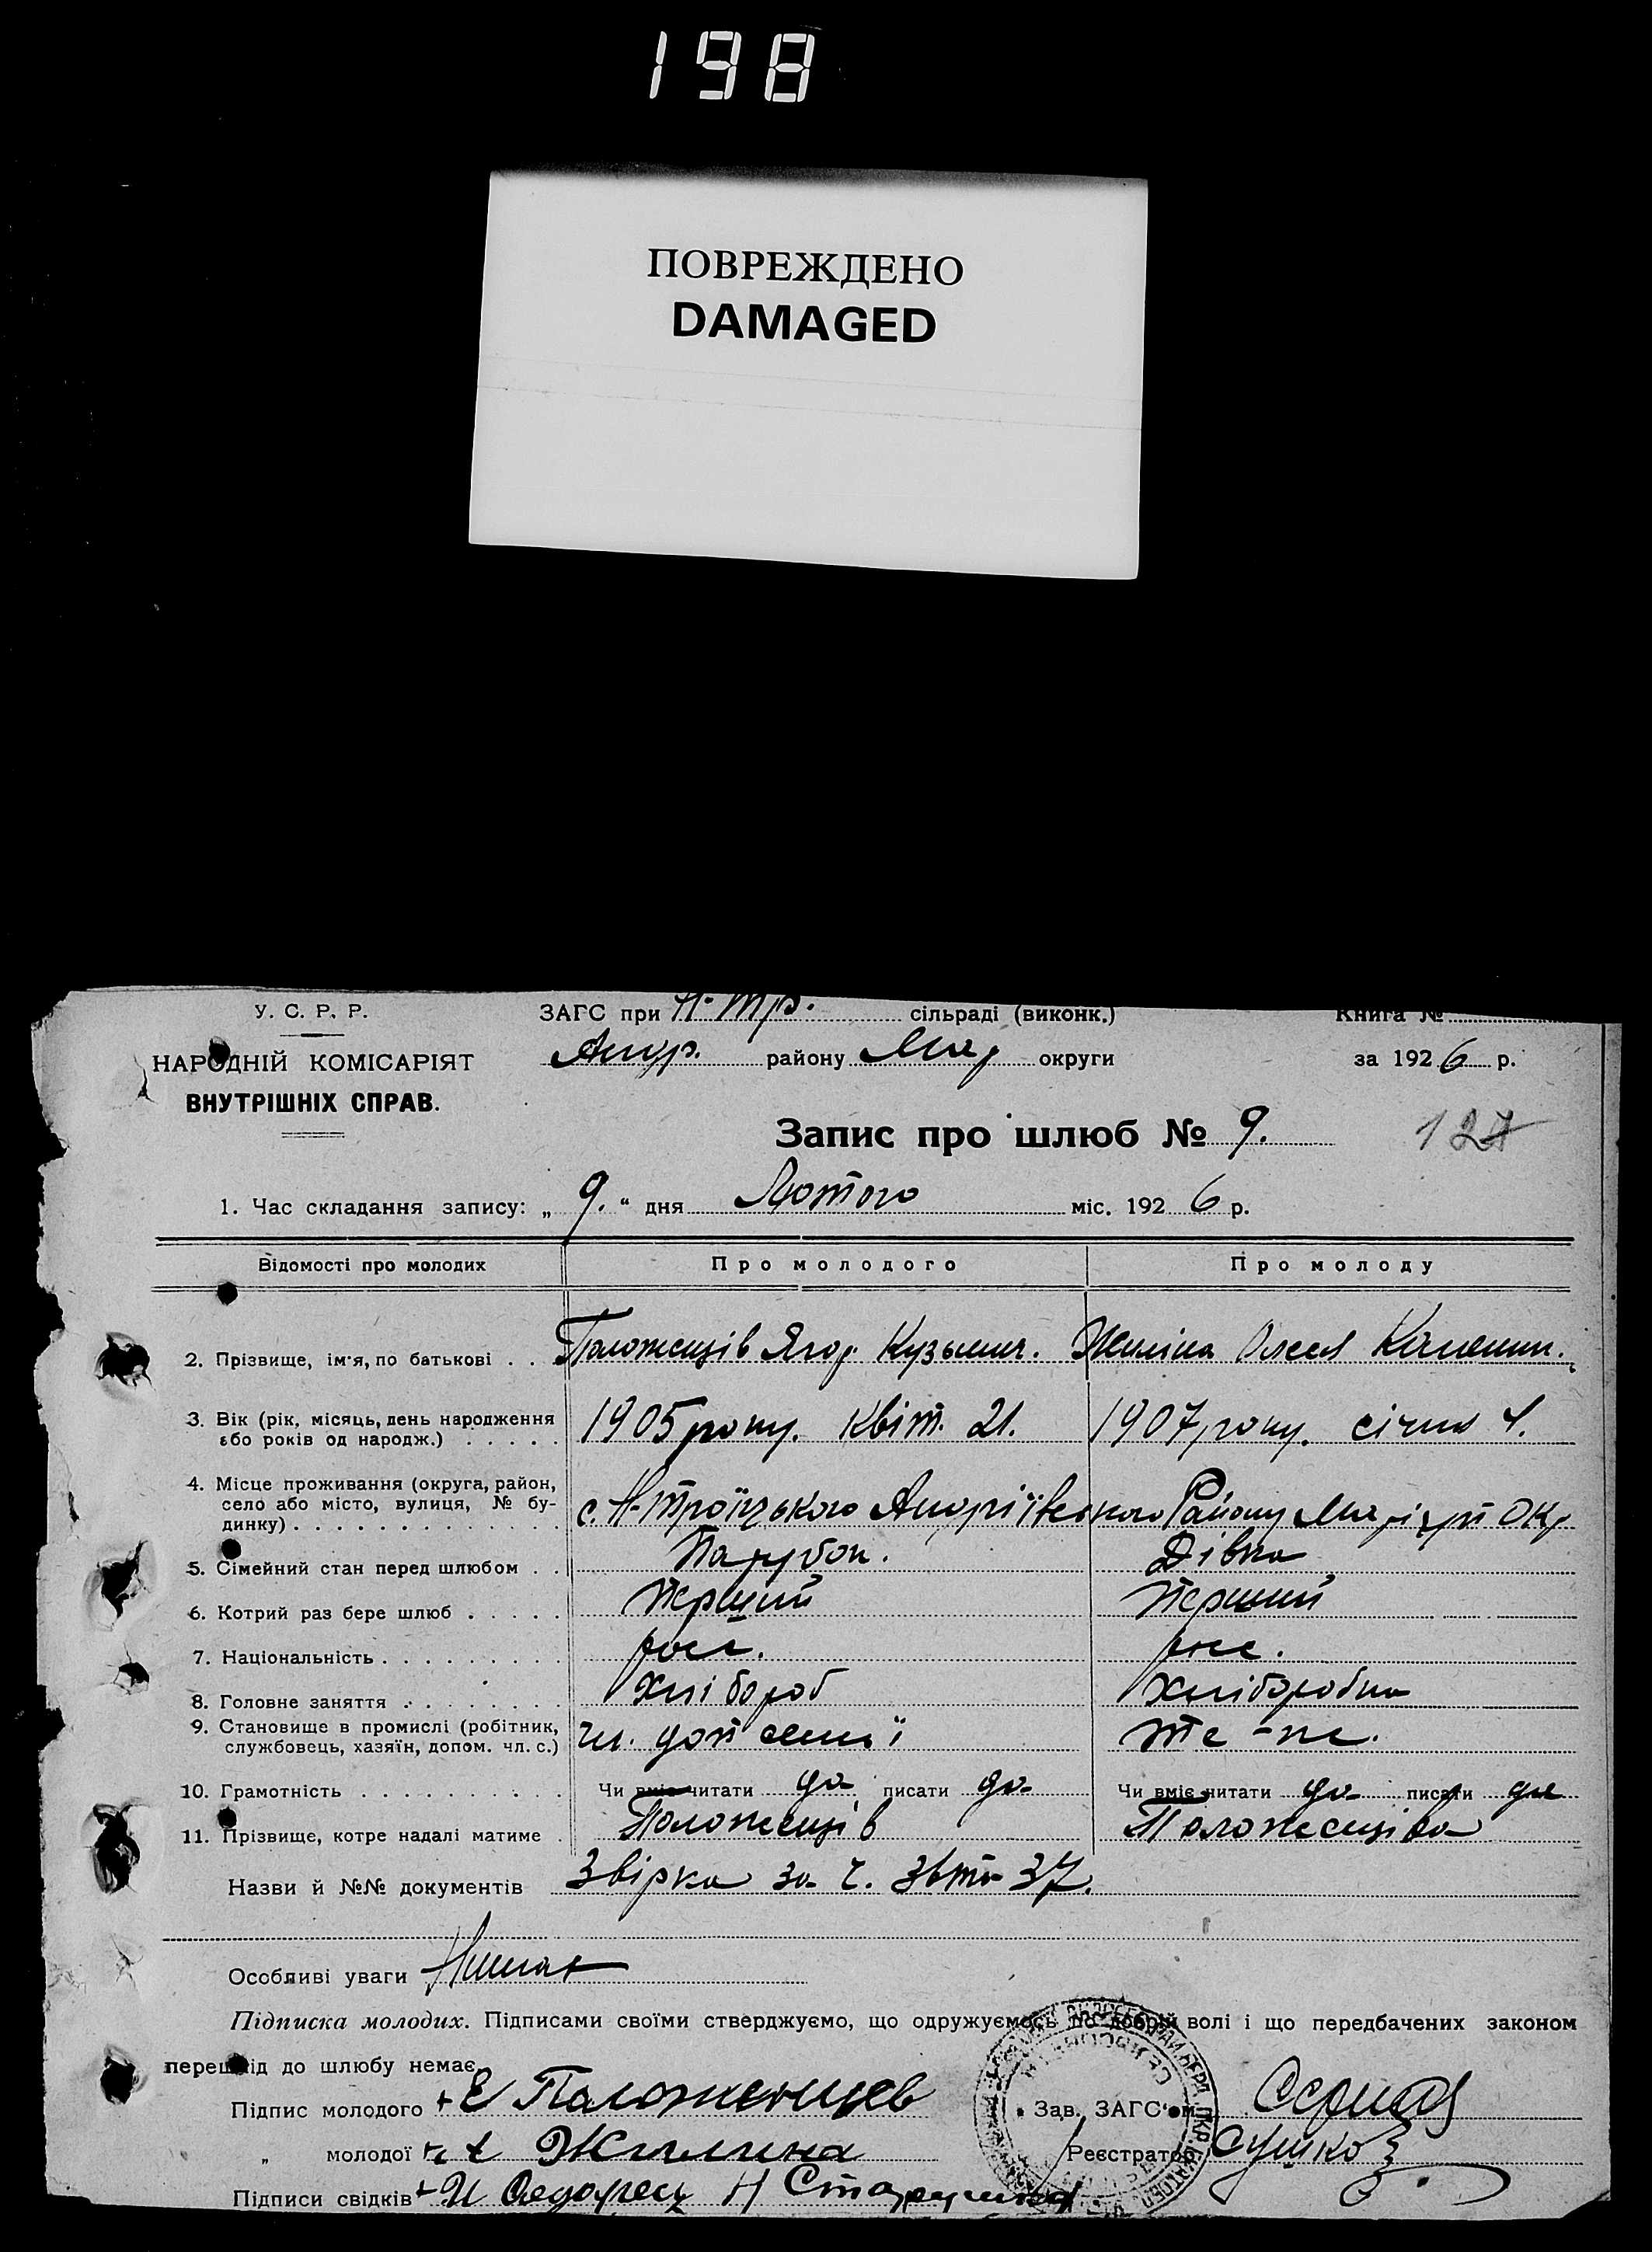 198
ПОВРЕЖДЕНО
DAMAGED
У. С. Р. Р. ЗАГС при Н-Тр. сільраді (виконк.) Книга №
НАРОДНІЙ КОМІСАРІЯТ Андр. району Мар округи за 1926 р.
ВНУТРІШНІХ СПРАВ.
Запис про шлюб № 9. 127
1. Час складання запису: „9.“ дня Лютого міс. 1926 р.
Відомості про молодих Про молодого Про молоду
2. Прізвище, ім'я, по батькові . . Положенців Ягор Кузьмич. Жиліна
3. Вік (рік, місяць, день народження 1905 року. Квіт. 21. 1907 року. січня
або років од народж.) . . . . .
4. Місце проживання (округа, район,
село або місто, вулиця, № бу- с. Н-Троїцького Андріївського Району Маріуп Окр
динку) . . . . . . . . . . . . .
5. Сімейний стан перед шлюбом . . Парубок. Дівка
6. Котрий раз бере шлюб . . . . . Перший Перший
7. Національність . . . . . . . . . рос. рос.
8. Головне заняття . . . . . . . . Хлібороб Хліборобка
9. Становище в промислі (робітник, чл. доп семї те-же.
службовець, хазяїн, допом. чл. с.)
10. Грамотність . . . . . . . . . . Чи вміє читати да писати да Чи вміє читати да писати да
11. Прізвище, котре надалі матиме . Положенців Положенціва
Назви й №№ документів Звірка за ч. 37.
Особливі уваги
Підписка молодих. Підписами своїми стверджуємо, що одружуємось по добрій волі і що передбачених законом
перешкід до шлюбу немає.
Підпис молодого Е Положенцев Зав. ЗАГС'ом
„ молодої Жилина Реєстратор Сушко
Підписи свідків И Н